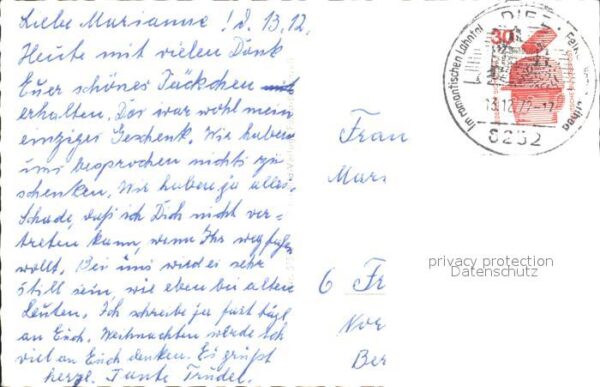 Liebe Marianne! d. 13.12.
Heute mit vielen Dank
Euer schönes Päckchen
erhalten. Das war wohl mein
einziges Geschenk. Wir haben
uns besprochen nichts zu
schenken. Wir haben ja alles.
Schade, daß ich Dich nicht ver-
treten kann, wenn Ihr wegfahren
wollt. Bei uns wird es sehr
still sein, wie eben bei alten
Leuten. Ich schreibe ja fast tägl.
an Euch. Weihnachten werde ich
viel an Euch denken. Es grüßt
herzl. Tante Trudel.
DIEZ
Im romantischen Lahntal
13.12.72-17
6252
30
Frau
Mari
6 Fr
Nor
Ber
privacy protection
Datenschutz